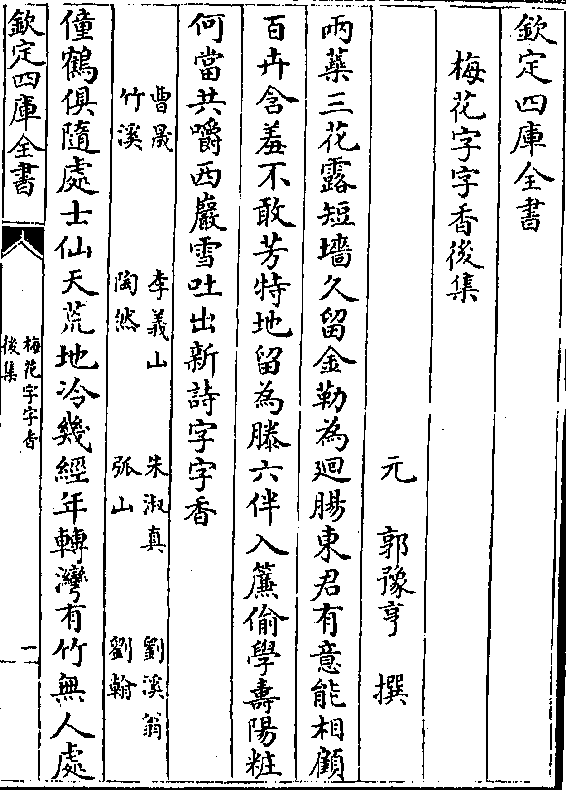 欽定四庫全書
梅花字字香後集
元 郭豫亨 撰
兩蘂三花露短墻久留金勒為廻腸東君有意能相顧
百卉含羞不敢芳特地留為滕六伴入簾偷學壽陽粧
何當共嚼西巖雪吐出新詩字字香
曹晟 李義山 朱淑真 劉溪翁
竹溪 陶然 弧山 劉翰
僮鶴俱隨處士仙天荒地冷幾經年轉灣有竹無人處
欽定四庫全書
梅花字字香
後集
一